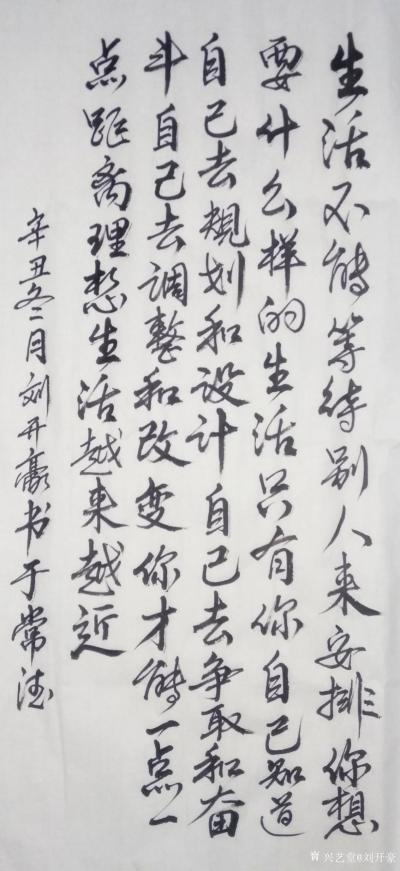 生活不能等待别人来安排你想
要什么样的生活只有你自己知道
自己去規划和设计自己去争取和奋
斗自己去調整和改变你才能一点一
点距离理想生活越来越近
辛丑冬二月刘开豪书于常德
兴艺堂@刘开豪